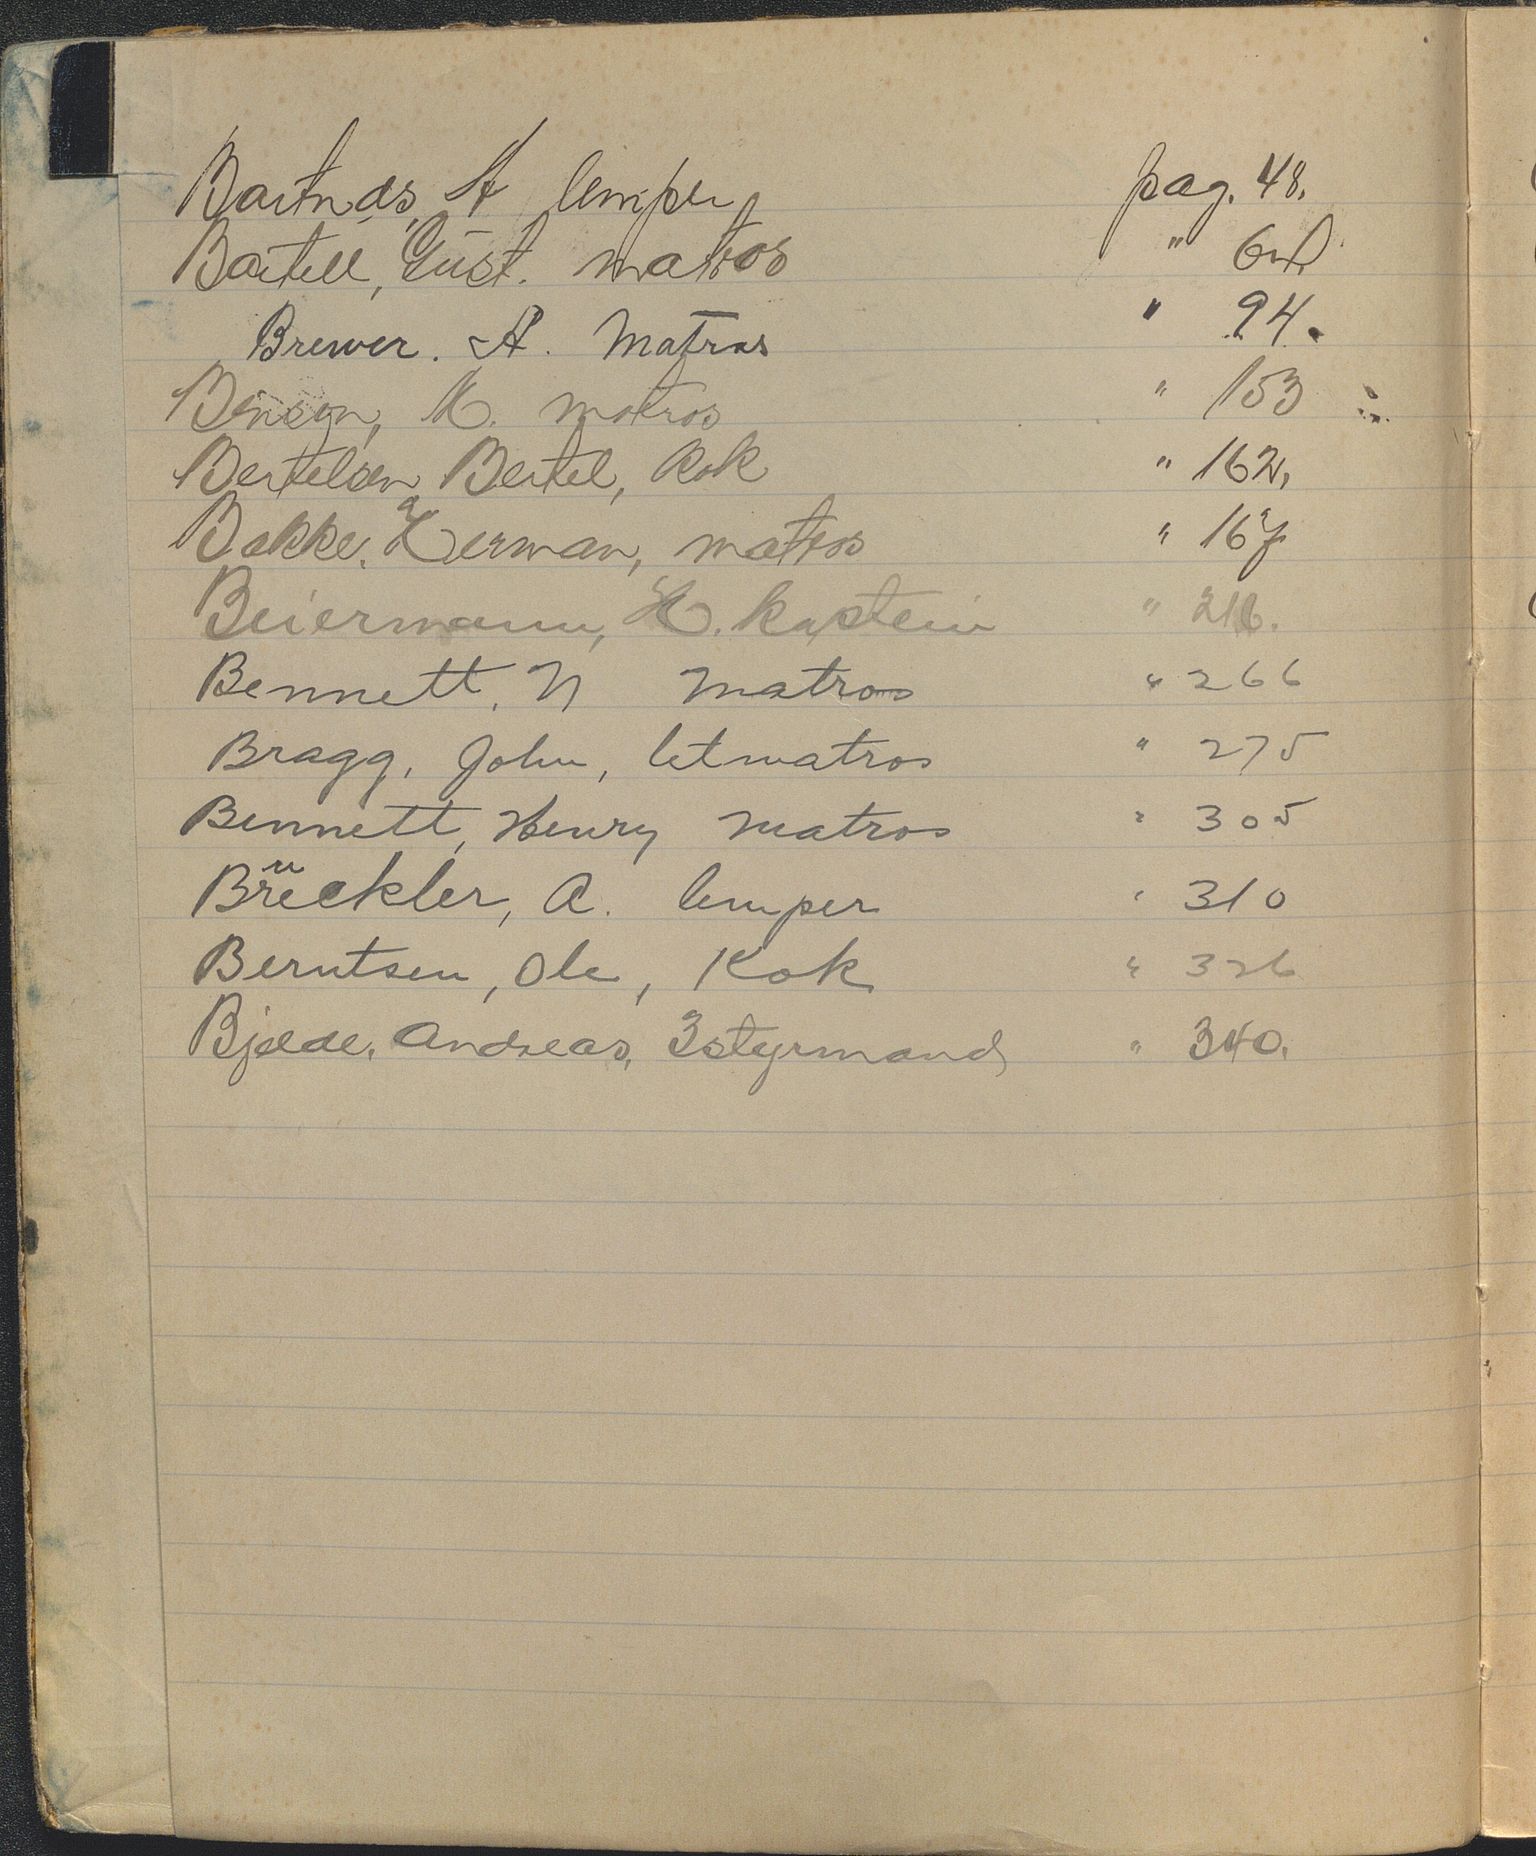 Bartnes, A lemper pag. 48.
Bartell, Gust. matros "
Brewer. A. Matros " 94.
Benson, K. matros " 153
Bertelsen Bertel, Kok " 162,
Bakke, Herman, matros " 167
Beiermann, H. Kaptein " 216.
Bennett, N Matros " 266
Bragg, John, letmatros " 275
Bennett, Henry Matros " 305
Brückler, A. lemper " 310
Berntsen, Ole, Kok " 326
Bjelde, Andreas, 3styrmand " 340.